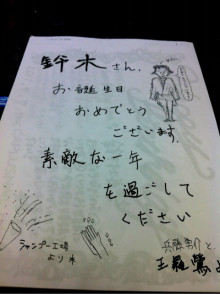 鈴木さん、
お誕生日
おめでとう
ございます。
素敵な一年
を過ごして
ください
シャンプー工場
より